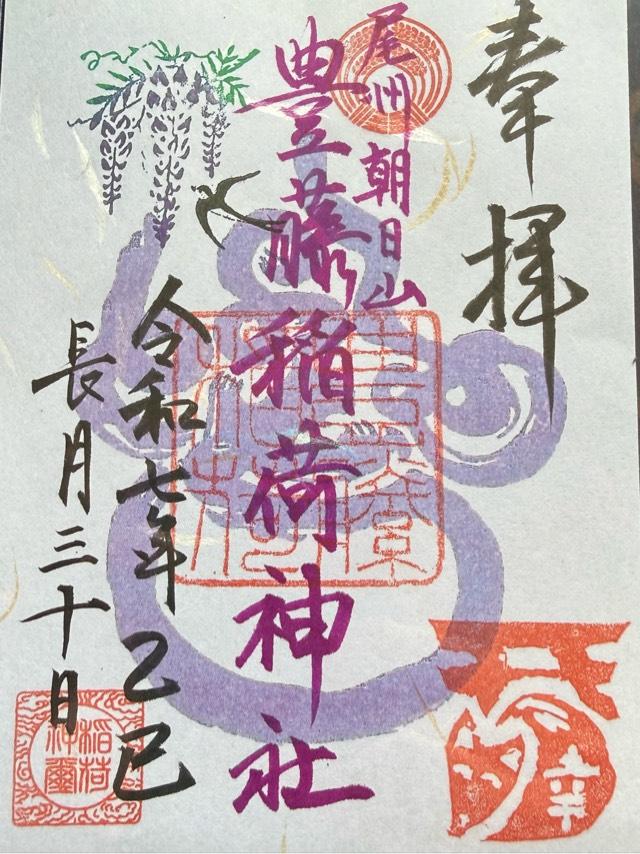 奉拝
尾州朝日山
豊藤稲荷神社
令和七年乙巳
長月三十日
稲荷
神璽